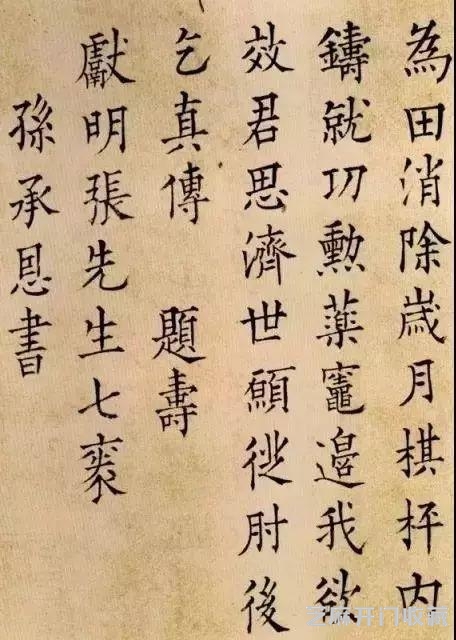 為田消除歲月棋枰内
鑄就功勲藥竈邉我欲
效君思濟世願從肘後
乞真傳 題壽
獻明張先生七袠
孫承恩書
芝麻开门收藏